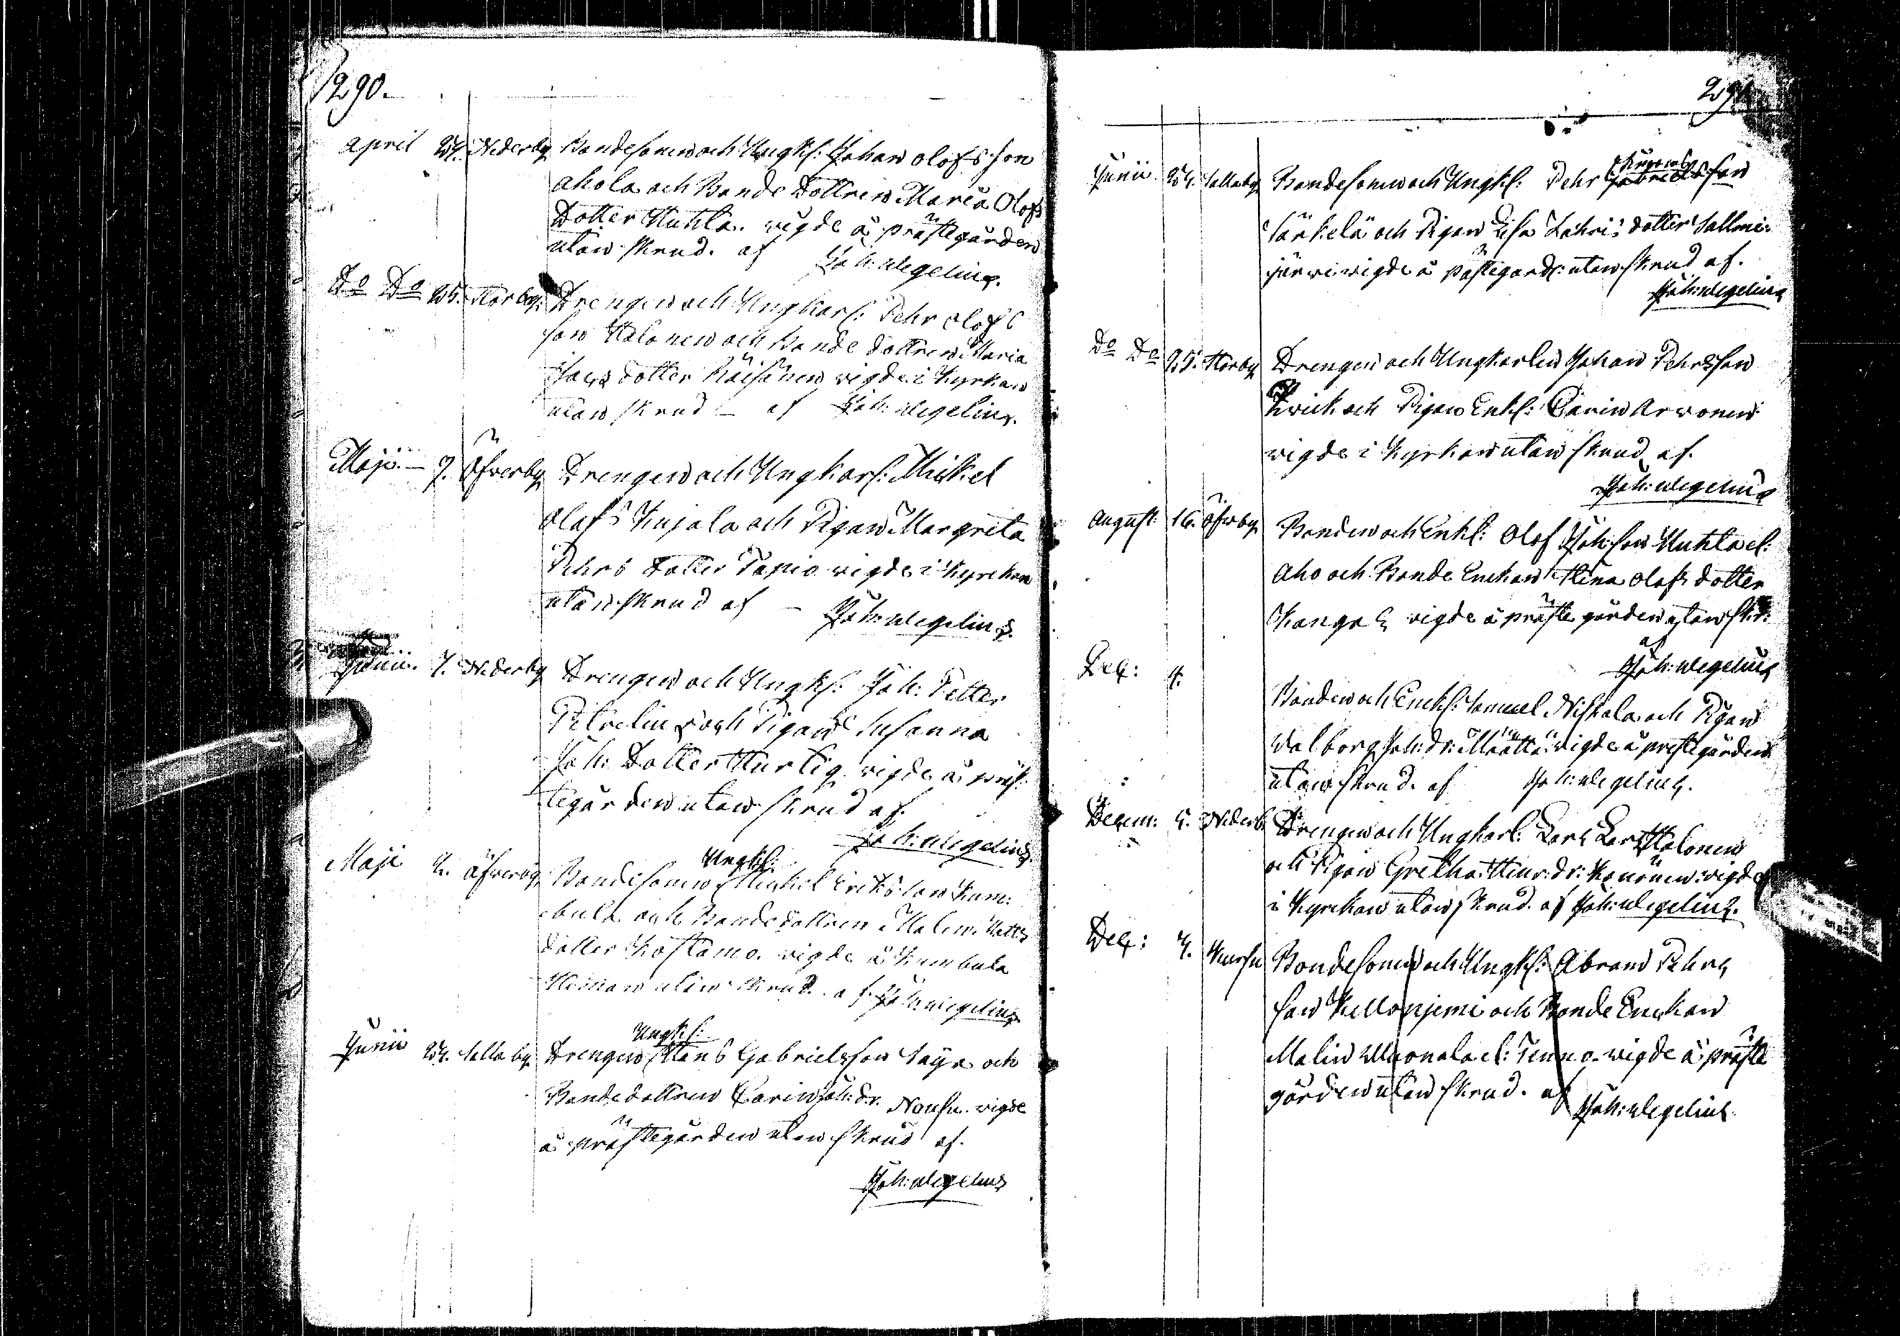 290.
April 24. Nederby Bondesonen och Ungks: Johan Olofs son
Ahola och Bonde Dottren Maria Olofs
Dotter Huhta. vigde å prästegården
utan skrud. af Joh: Wegelius.
Do Do 25. Storby. Drengen och Ungkarl: Pehr Olofs
son Halonen och Bonde dottren Maria
dotter Räisänen vigde i Kyrkan
utan skrud – af Joh: Wegelius.
Maji – 7. Öfverby Drengen och Ungkarl: Mickel
Olofs Kujala och Pigan Margreta
Pehrs Dotter Tapio vigde i Kyrkan
utan skrud af – Joh: Wegelius.
Junii. 4. Nederby Drengen och Ungks: Joh: Petter
Petrelius och Pigan Susanna
Joh: Dotter Hurtig vigde å präs-
tegården utan skrud af.
Joh: Wegelius
Ungks:
Maji 2. Öfverby Bondesonen Mickel Erikssson Kum:
bula och Bondedottren Malin Matts
dotter Kostamo. vigde å Kumbula
Heman utan skrud. af Joh: Wegelius
Ungks:
Junii 24. Salla by Drengen Hans Gabrielsson Saija och
Bondedottren Carin Joh: dr. Nousu. vigde
å prästegården utan skrud af.
Joh: Wegelius
291.
Junii 24. Sallaby Bondesonen och Ungks: Pehr Gabrielsson
Särkelä och Pigan Lisa Lahri: dotter Sallmi-
järvi vigde å prästegård: utan skrud af.
Joh: Wegelius
Do Do 25. Storby Drengen och Ungkarlen Johan Pehrsson
och Pigan Enkl: Carin Arvonen
vigde i Kyrkan utan skrud af.
Joh: Wegelius
August: 16. Öfvrby Bonden och Enkl: Olof Joh:son Huhta el:
Aho och Bonde Enckan Stina Olofs dotter
Kangas vigde å prästegården utan skr:
af
Joh: Wegelius
Dec: 4. Bonden och Enckl: Samuel Niskala och Pigan
Walborg Joh: dr: Määttä: vigde å prestegården
utan skrud. af Joh: Wegelius.
Decem: 5. Nederb: Drengen och Ungkarl: Lars Lars: Halonen
och Pigan Gretha Hinr: dr: vigde
i Kyrkan utan skrud. af Joh: Wegelius.
Dec: 4. Kursu Bondesonen och Ungks: Abram Pehrs
son Kellonjemi och Bonde Enckan
Malin el: Tenno. vigde å präste
gården utan skrud. af Joh: Wegelius